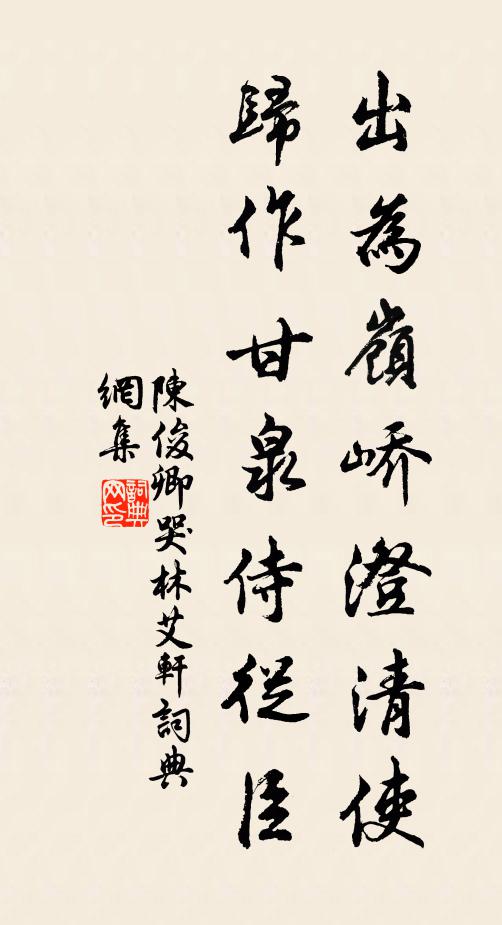 出為嶺嶠澄清使
歸作甘泉侍從臣
陳俊卿哭林艾軒詞典
網集
詞典
網印